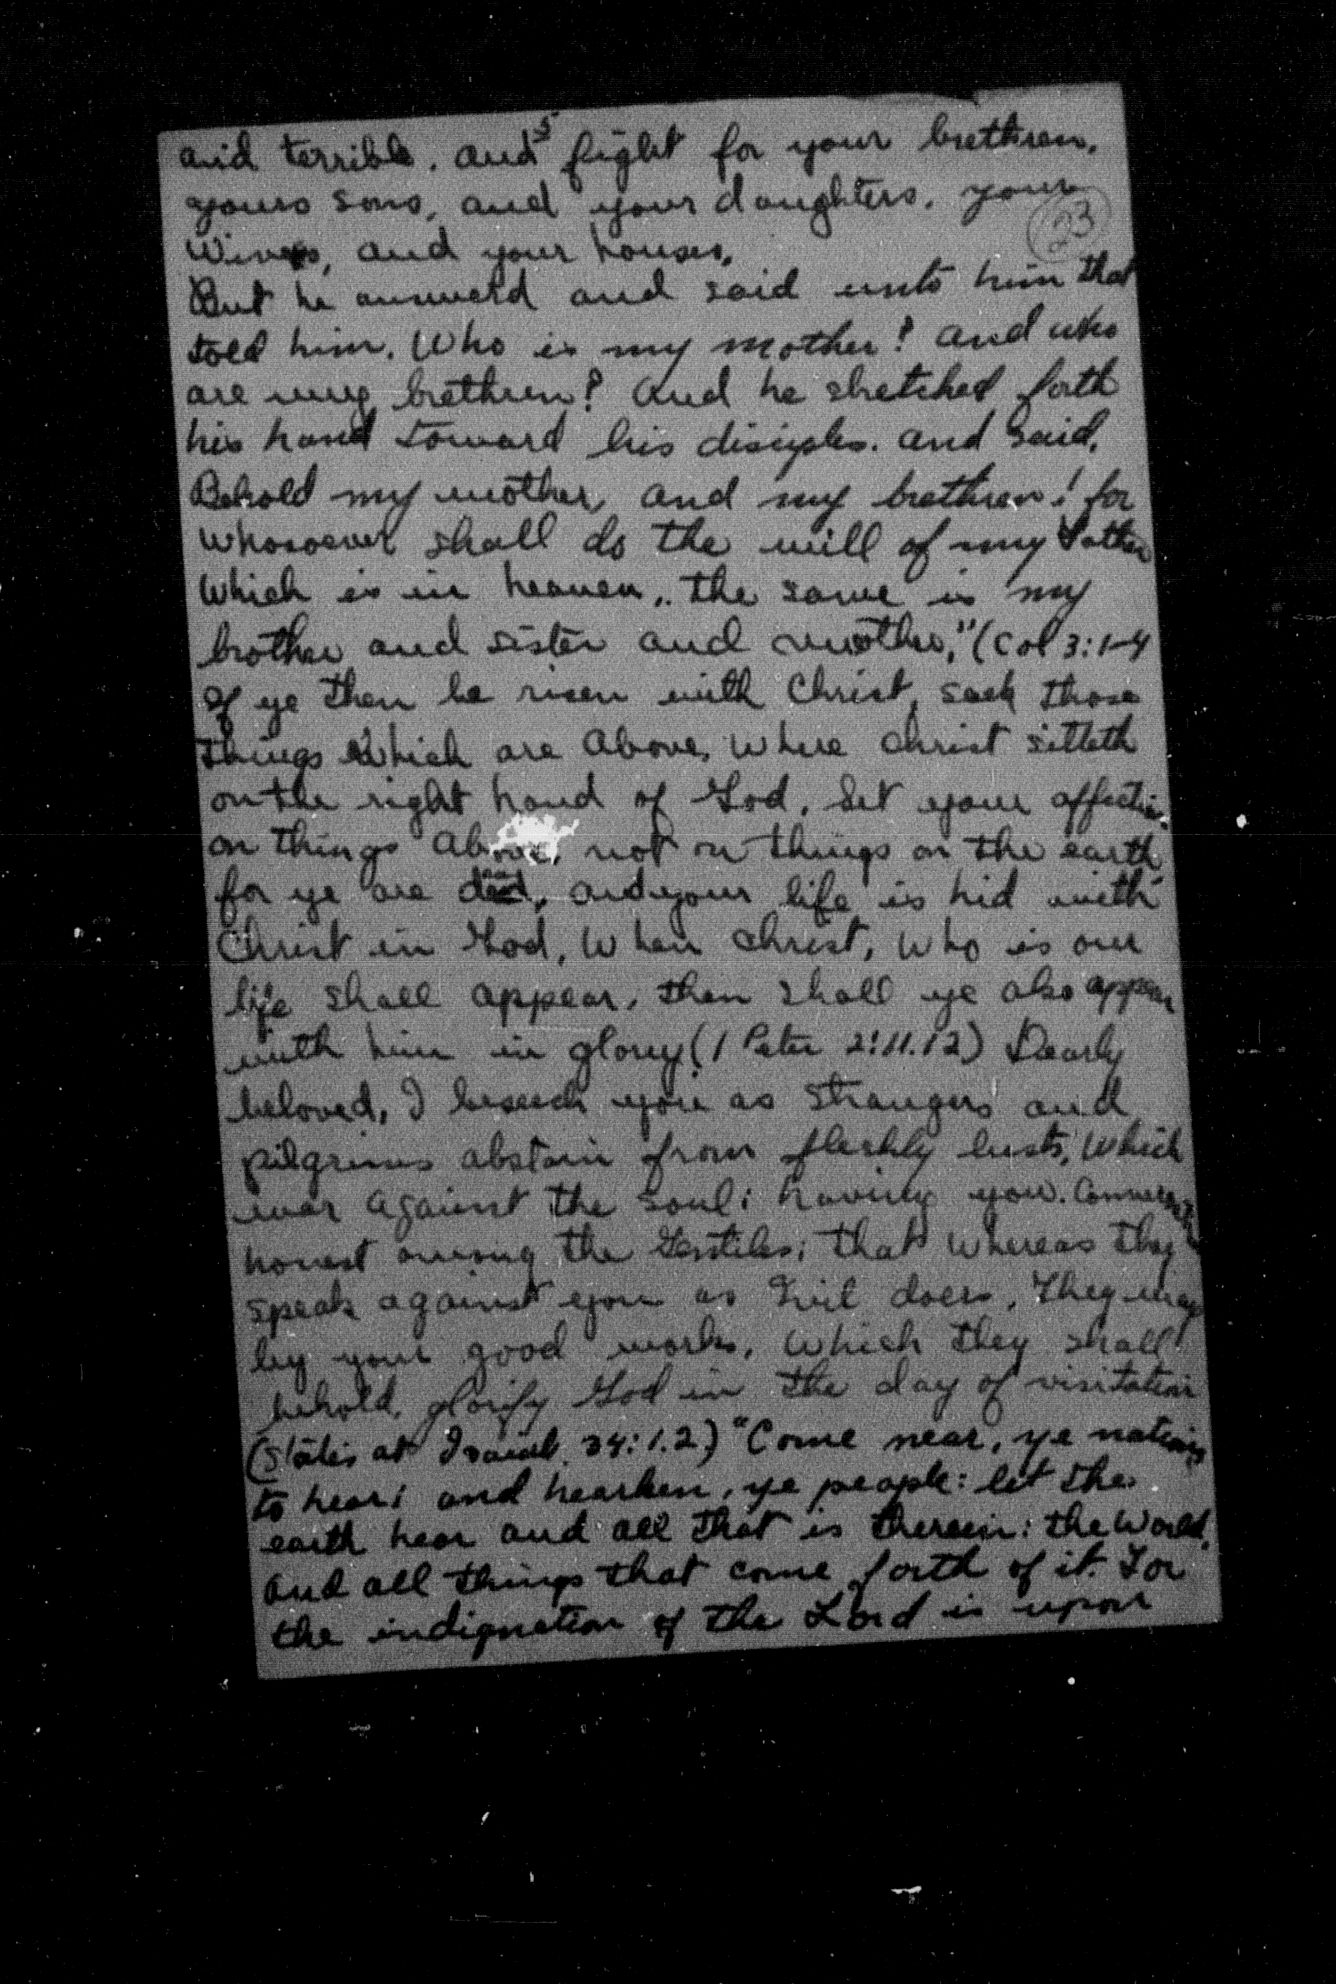 5
and terrible. and fight for your brethren,
yours sons, and your daughters. your
23
Wives, and your houses.
But he answerd and said unto him that
told him. Who is my mother? and who
are my brethren? and he stretched forth
his hand toward his disciples. and said,
Behold my mother and my brethren! for
Whosoever shall do the will of my Father
Which is in heaven, the same is my
brother and sister and mother," (Col 3:1-4
If ye then be risen with Christ, seek those
things Which are above, where Christ sitteth
on the right hand of God. Set your affection
on things above, not on things on the earth
for ye are dead, and your life is hid with
Christ in God. When Christ, Who is our
life shall appear, then shall ye also appear
with him in glory (1 Peter 2:11.12) Dearly
beloved, I beseech you as strangers and
pilgrims abstain from fleshly lusts, Which
war against the soul; having you.
honest among the Gentiles; that whereas they
speak against you as Evil doers, They may
by your good works, Which they shall
behold, glorify God in the day of visitation
(States at Isaiah 34:1.2) "Come near, ye nations
to hear; and hearken, ye people: let the
earth hear and all that is therein; the World,
and all things that come forth of it. For
the indignation of the Lord is upon